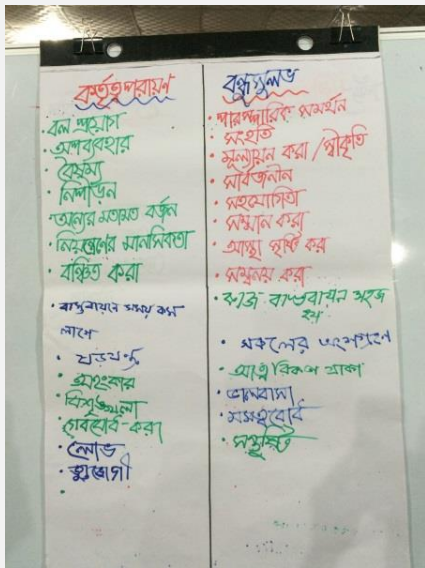 কর্তৃত্বপরায়ণ
· বল প্রয়োগ
· অপব্যবহার
· বৈষম্য
· নিপীড়ন
· অন্যের মতামত বর্জন
· নিয়ন্ত্রণের মানসিকতা
· বঞ্চিত করা
· বাস্তবায়নে সময় কম
লাগে
· ষড়যন্ত্র
· অহংকার
· বিশৃঙ্খলা
· করা
· লোভ
বন্ধুসুলভ
· পারস্পারিক সমর্থন
· সংহতি
· মূল্যায়ন করা / স্বীকৃতি
· সার্বজনীন
· সহযোগিতা
· সম্মান করা
· আস্থা সৃষ্টি কর
· সমন্বয় করা
· কাজ বাস্তবায়ন সহজ
হয়
· সকলের অংশগ্রহণ
· থাকা
· ভালবাসা
· মমত্ববোধ
· সন্তুষ্টি